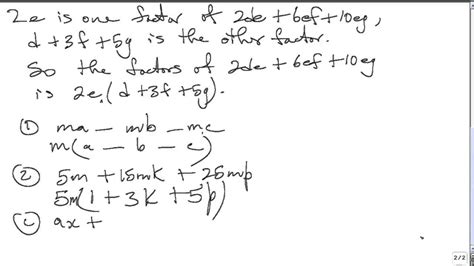 2e is one factor of 2de + 6ef + 10eg,
d + 3f + 5g is the other factor.
So the factors of 2de + 6ef + 10eg
is 2e (d + 3f + 5g).
① ma - mb - mc
m(a - b - c)
② 5m + 15mk + 25mp
5m(1 + 3k + 5p)
C ax +
2/2